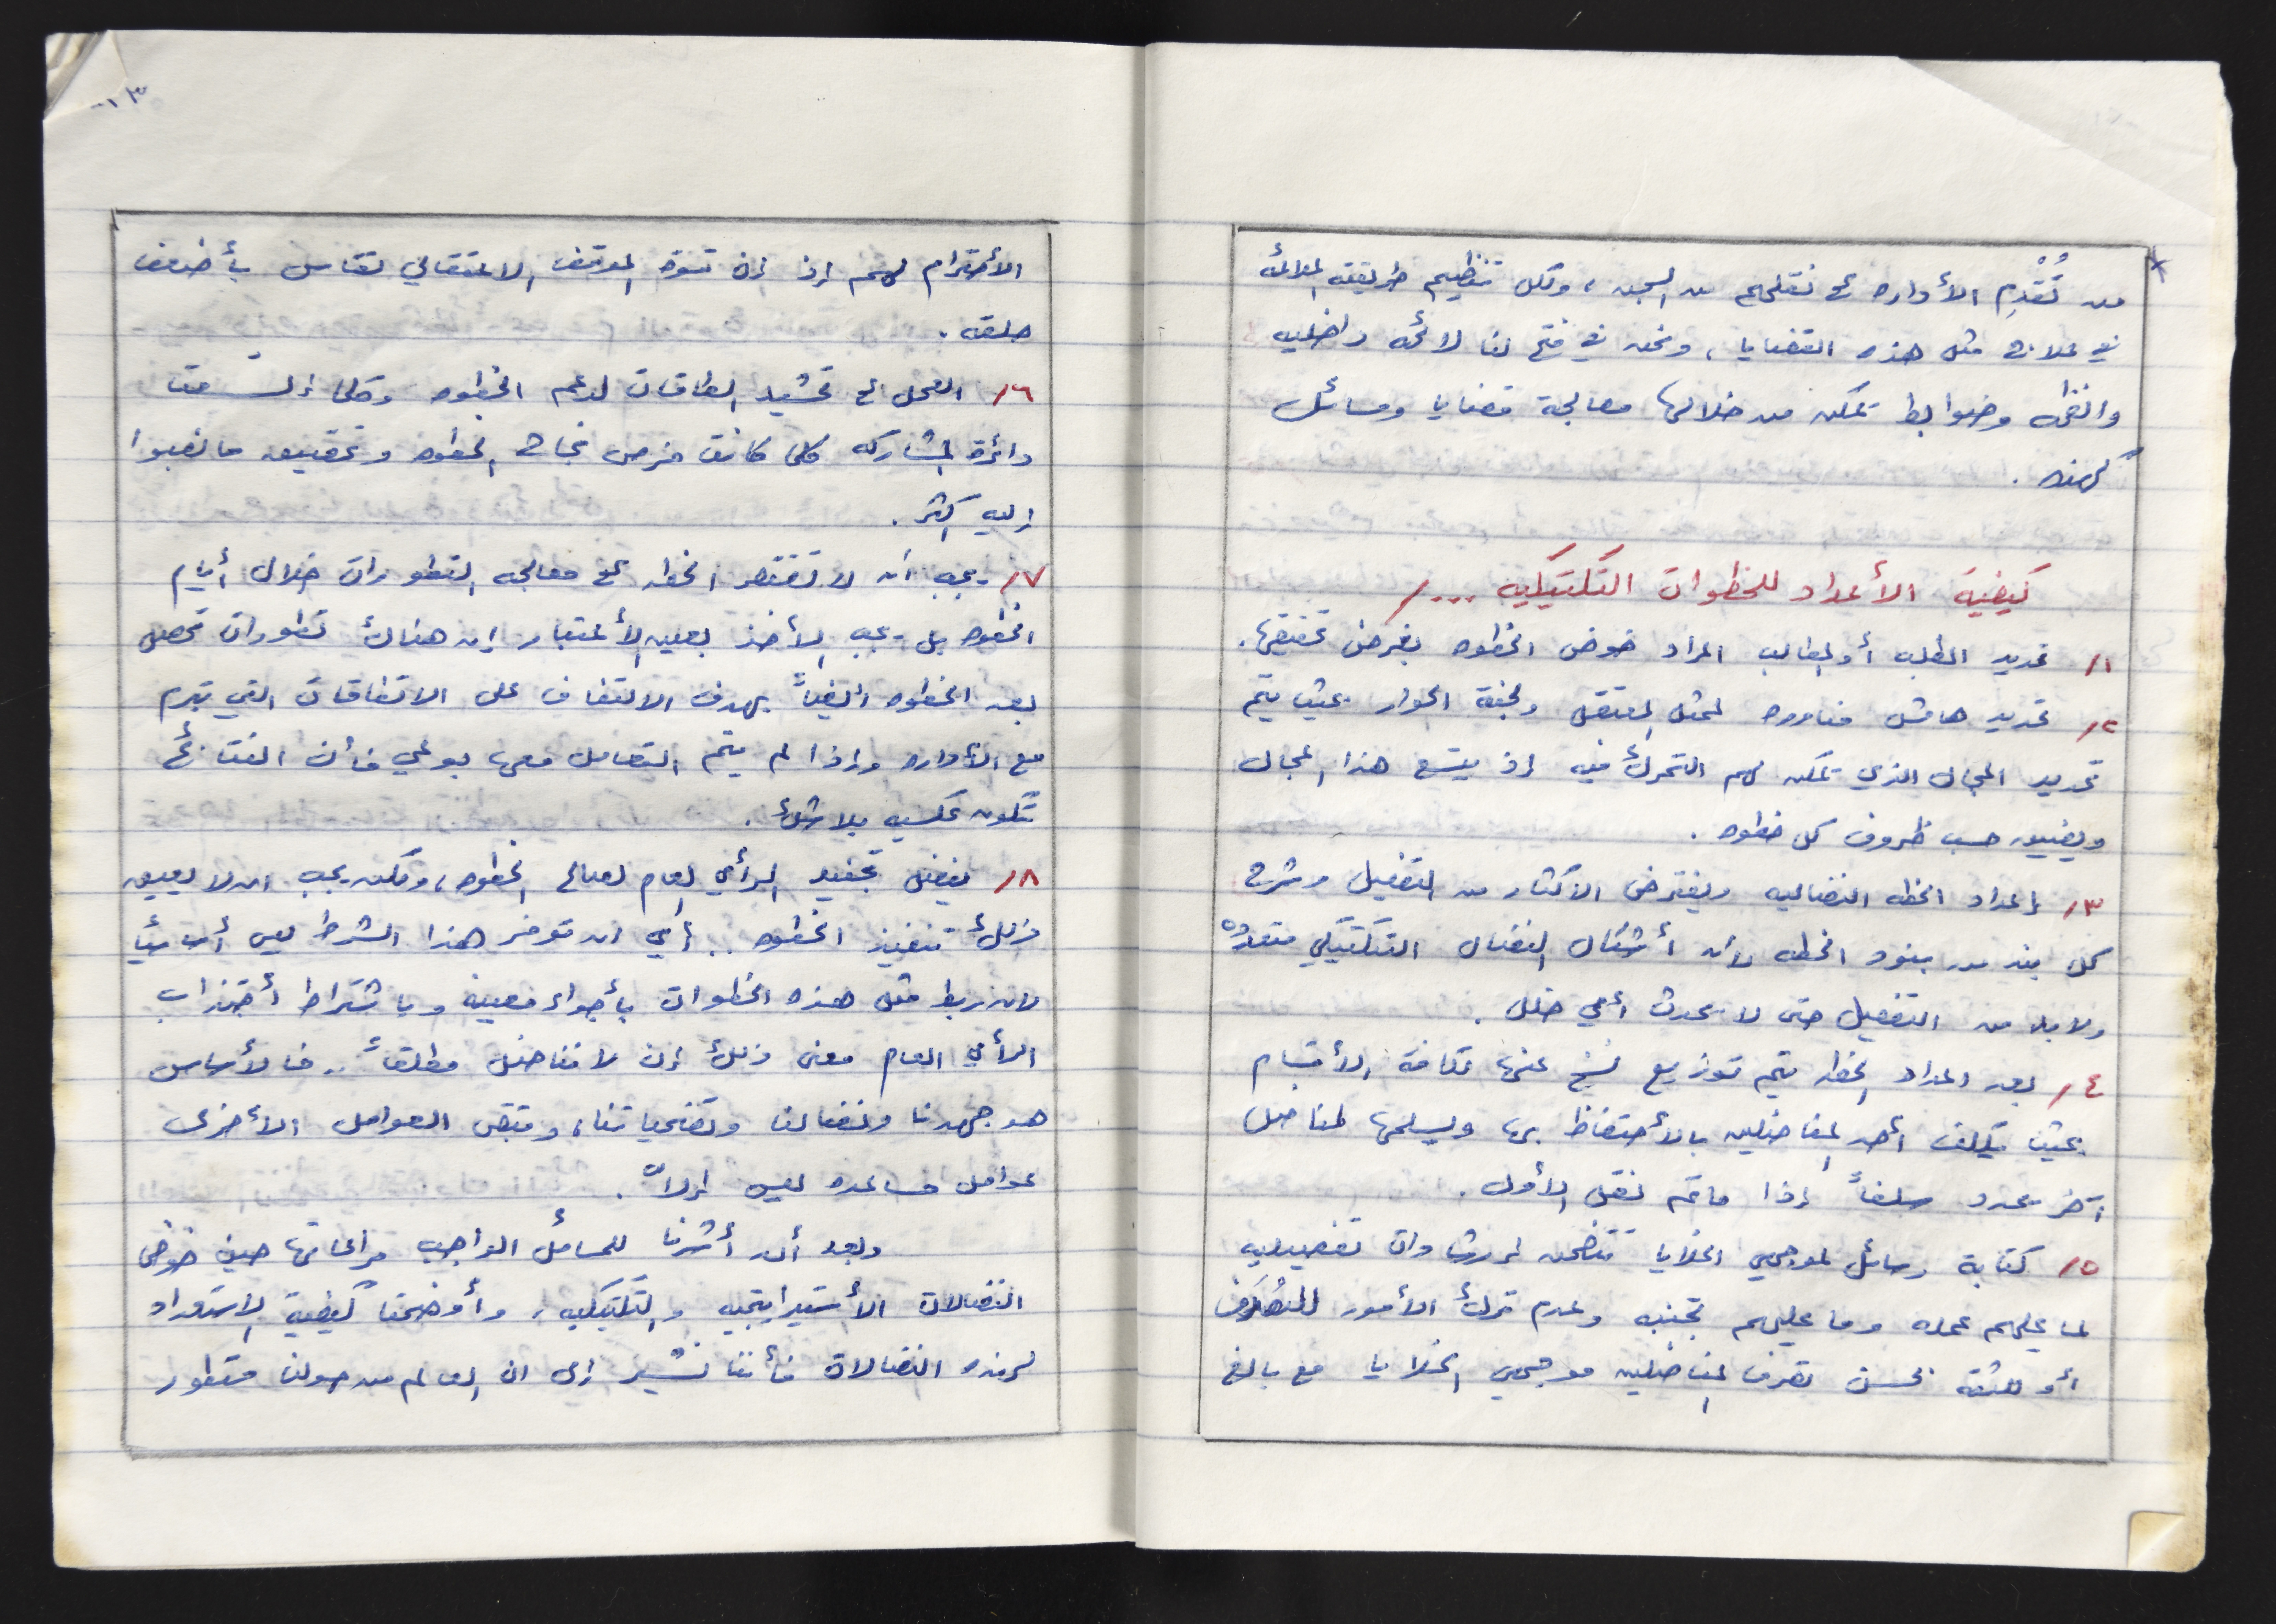 من تُقْدِم الأداره على نقلهم من السجن ، ولكل تنظيم طريقته الملائمه
في علاج مثل هذه القضايا ، ونحن في فتح لنا لائحه داخليه
وانظمه وضوابط يمكن من خلالها معالجة قضايا ومسائل
كهذه .
كيفية الأعداد للخطوات التكتيكيه .../
١/ تحديد المطلب أو المطالب المراد خوض الخطوه بغرض تحقيقها .
٢/ تحديد هامش مناوره لممثل المعتقل ولجنة الحوار بحيث يتم
تحديد المجال الذي يمكن لهم التحرك فيه إذ يتسع هذا المجال
ويضيق حسب ظروف كل خطوه .
٣/ إعداد الخطه النضاليه ويفترض الاكثار من التفصيل وشرح
كل بند من بنود الخطه لأن أشكال النضال التكتيكي متعدده
ولا بد من التفصيل حتى لا يحدث أي خلل .
٤/ بعد اعداد الخطه يتم توزيع نسخ عنها لكافة الأقسام
بحيث يكلف أحد المناضلين بالأحتفاظ بها ويسلمها لمناضل
آخر يحدد سلفاً إذا ما تم نقل الأول .
٥/ كتابة رسائل لموجهي الخلايا تتضمن إرشادات تفصيليه
لما عليهم عمله وما عليهم تجنبه وعدم ترك الأمور للصُدَف
أو للثقه بحسن تصرف المناضلين موجهي الخلايا مع بالغ
٣١
الأحترام لهم إذ إن قوة الموقف الاعتقالي تقاس بأضعف
حلقه .
٦/ العمل على تحشيد الطاقات لدعم الخطوه وكلما إتسعت
دائرة المشاركه كلما كانت فرص نجاح الخطوه وتحقيق ما نصبوا
اليه اكثر .
٧/ يجب أن لا تقتصر الخطه على معالجه التطورات خلال أيام
الخطوه بل يجب الأخذ بعين الأعتبار إن هناك تطورات تحصل
بعد الخطوه أيضاً بهدف الالتفاف على الاتفاقات التي تبرم
مع الأداره وإذا لم يتم التعامل معها بوعي فأن النتائج
تكون عكسيه بلا شك .
٨/ يفضل تجنيد الرأي العام لصالح الخطوه ، ولكن يجب ان لا يعيق
ذلك تنفيذ الخطوه .. أي ان توفر هذا الشرط ليس أساسياً
لان ربط مثل هذه الخطوات بأجواء معينه وباشتراط أجتذاب
الرأي العام معنى ذلك إن لا نناضل مطلقاً .. فالأساس
هو جهدنا ونضالنا وتضحياتنا ، وتبقى العوامل الأخرى
عوامل مساعده ليس إلاّ .
وبعد أن أشرنا للمسائل الواجب مراعاتها حين خوض
النضالات الأستيراتيجيه والتكتيكيه ، وأوضحنا كيفية الاستعداد
لهذه النضالات فأننا نشير إلى ان العالم من حولنا متطور